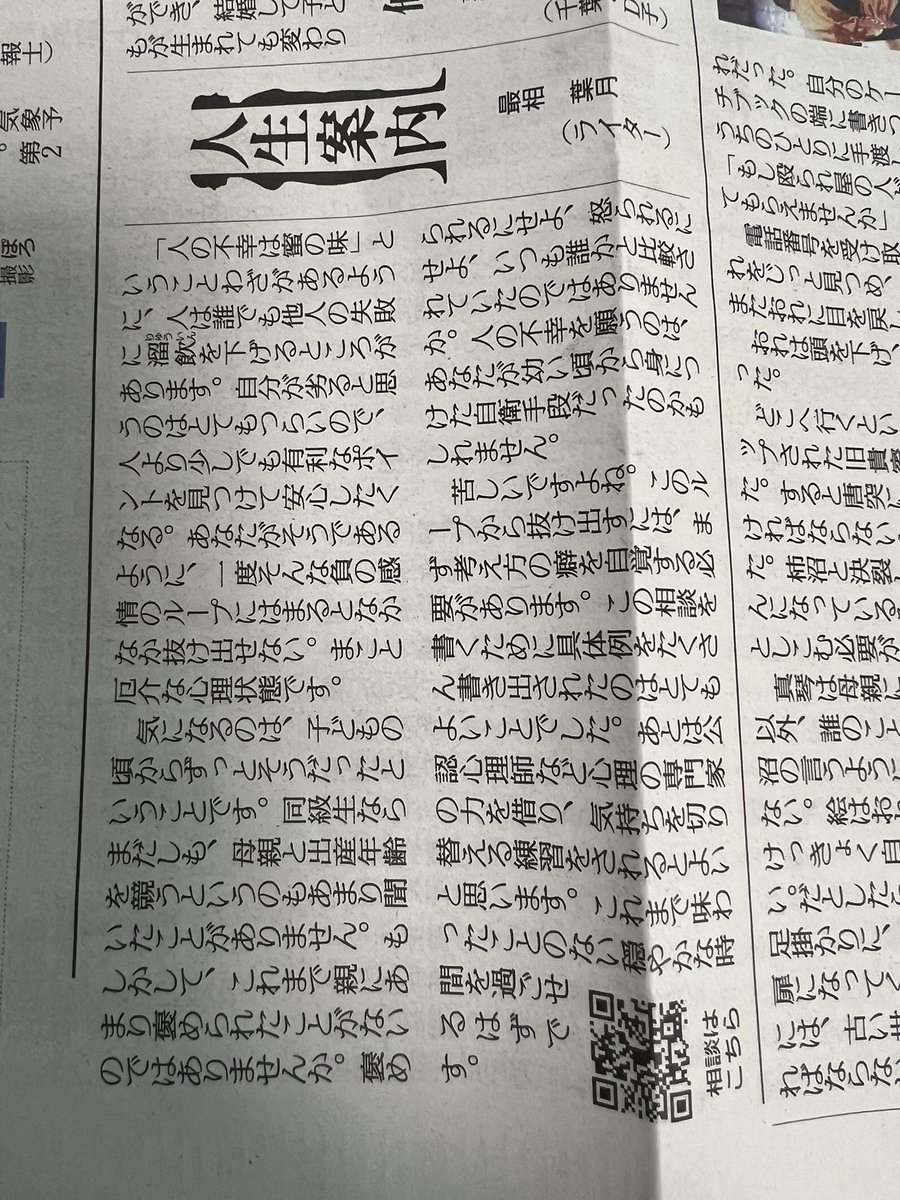 ができ、結婚して子ど
もが生まれても変わり
人生案内
最相 葉月
(ライター)
「人の不幸は蜜の味」と
いうことわざがあるよう
に、人は誰でも他人の失敗
に溜飲を下げるところが
りゅういん
あります。自分が劣ると思
うのはとてもつらいので、
人より少しでも有利なポイ
ントを見つけて安心したく
なる。あなたがそうである
ように、一度そんな負の感
情のループにはまるとなか
なか抜け出せない。まこと
厄介な心理状態です。
気になるのは、子どもの
頃からずっとそうだったと
いうことです。同級生なら
まだしも、母親と出産年齢
を競うというのもあまり聞
いたことがありません。も
しかして、これまで親にあ
まり褒められたことがない
のではありませんか。褒め
られるにせよ、怒られるに
せよ、いつも誰かと比較さ
れていたのではありません
か。人の不幸を願うのは、
あなたが幼い頃から身につ
けた自衛手段だったのかも
しれません。
苦しいですよね。このル
ープから抜け出すには、ま
ず考え方の癖を自覚する必
要があります。この相談を
書くために具体例をたくさ
ん書き出されたのはとても
よいことでした。あとは公
認心理師など心理の専門家
の力を借り、気持ちを切り
替える練習をされるとよい
と思います。これまで味わ
ったことのない穏やかな時
間を過ごせ
るはずで
す。
相談は
こちら
れだった。自分のケー
チブックの端に書きつ
うちのひとりに手渡し
「もし殴られ屋の人が
てもらえませんか」
電話番号を受け取
れをじっと見つめ、
またおれに目を戻し
おれは頭を下げ、
った。
どこへ行くとい
ップされた旧貴
た。すると唐突に
ければならない
た。柿沼と決裂し
んになっている
としこむ必要が
真琴は母親に
以外、誰のこと
沼の言うように
ない。絵はお
けっきょく自
い。だとしたら
足掛かりに、
扉になってく
には、古い世
ればならな
報士)
気象予
第2
撮影